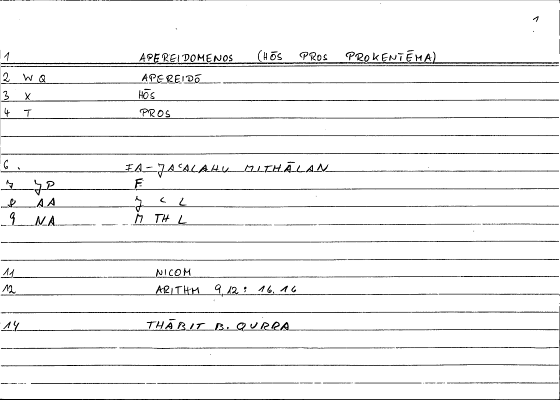 1
1 APEREIDOMENOS (HŌS PROS PROKENTĒMA)
2 WQ APEREIDŌ
3 X HŌS
4 T PROS
6. FA-JAʿALAHU MITHĀLAN
7 JP F
8 AA J ʿ L
9 NA M TH L
11 NICOM
12 ARITHM 9,12: 16.16
14 THĀBIT B. QURRA